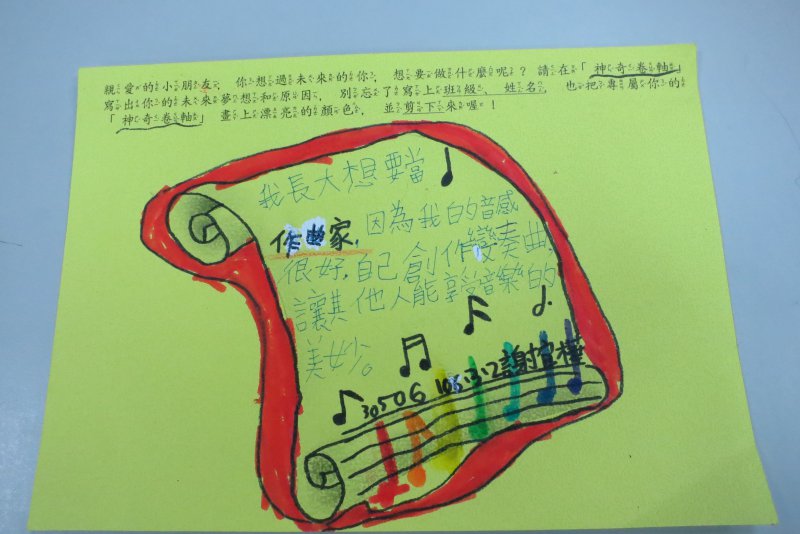 親愛的小朋友，你想過未來的你，想要做什麼呢？請在「神奇卷軸」
寫出你的未來夢想和原因，別忘了寫上班級、姓名，也把專屬你的
「神奇卷軸」畫上漂亮的顏色，並剪下來喔！
我長大想要當
作曲家,因為我的音感
很好,自己創作變奏曲,
讓其他人能享受音樂的
美妙。
30506 105.3.2謝宜樺